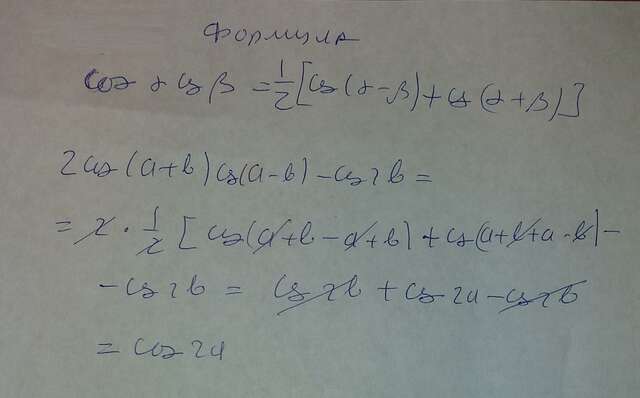 Формула
cos α cos β = 1/2 [cos (α - β) + cos (α + β)]
2 cos (a + b) cos (a - b) - cos 2b =
= 2 · 1/2 [cos (a + b - a + b) + cos (a + b + a - b) -
- cos 2b = cos 2b + cos 2a - cos 2b
= cos 2a